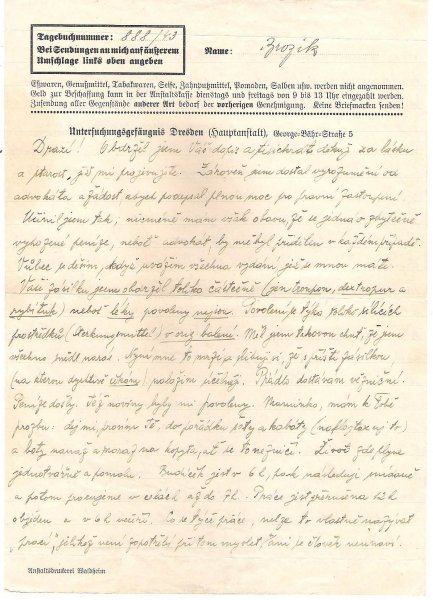 Tagebuchnummer: 888/43
Bei Sendungen an mich auf äußerem
Umschlage links oben angeben
Name: Brožík
Eßwaren, Genußmittel, Tabakwaren, Seife, Zahnputzmittel, Pomaden, Salben usw. werden nicht angenommen.
Geld zur Beschaffung kann in der Anstaltskasse dienstags und freitags von 9 bis 13 Uhr eingezahlt werden.
Zusendung aller Gegenstände anderer Art bedarf der vorherigen Genehmigung. Keine Briefmarken senden!
Untersuchungsgefängnis Dresden (Hauptanstalt), George-Bähr-Straße 5
Drazí! Obdržel jsem Váš dopis a děkuji za lásku
a starost, již mi projevujete. Zároveň jsem dostal vyrozumění od
advokáta a žádost abych podepsal plnou moc pro právní zastoupení.
Učinil jsem tak, nicméně mám však obavu, že se jedná o zbytečně
vyhozené peníze, neboť advokát by mě byl přidělen v každém případě.
Vůbec se děsím, když uvážím všechna vydání, jež se mnou máte.
Vaši zásilku jsem obdržel toliko částečně (jen
a neboť léky povoleny nejsou. Povolení se týká toliko sílících
prostředků (Stärkungsmittel) v orig. balení. Měl jsem takovou chuť, že jsem
všechno snědl naráz. Nyní mne to mrzí a slibuji si, že s příští zásilkou
(na kterou dychtivě čekám) naložím jinak. Prádlo dostávám vězeňské.
Peníze došly. Též noviny byly mi povoleny. Maminko, mám k Tobě
prosbu: dej mi, prosím Tě, do pořádku šaty a kabáty
a boty namaž a naraz na kopyta, ať se to neničí. Život zde plyne
jednotvárně a pomalu. Budíček jest v 6 h, pak následuje snídaně
a potom pracujeme v celách až do 7 h. Práce jest přerušena v 12 h
obědem a v 6 h večeří. Co se týče práce, nelze to vlastně nazývat
"prací", jelikož není zapotřebí při tom myslet, ani se člověk neunaví.
Anstaltsdruckerei Waldheim